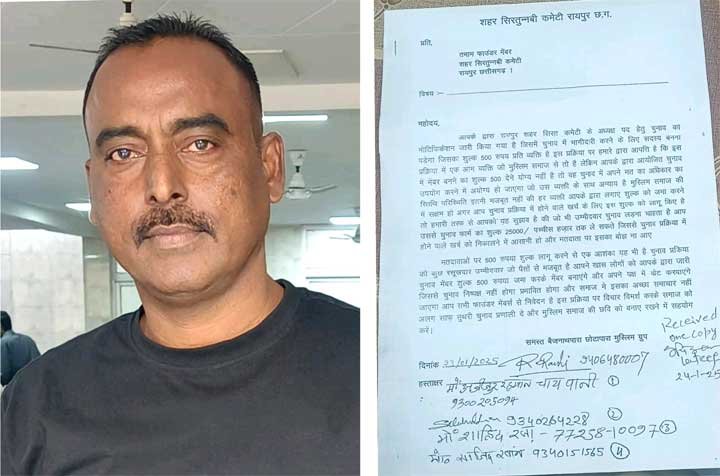 शहर सिरतुन्नबी कमेटी रायपुर छ.ग.
प्रति,
तमाम फाउंडर मेंबर
शहर सिरतुन्नबी कमेटी
रायपुर छत्तीसगढ़ ।
विषय :-
महोदय,
आपके द्वारा रायपुर शहर सिरत कमेटी के अध्यक्ष पद हेतु चुनाव का
नोटिफिकेशन जारी किया गया है जिसमें चुनाव में भागीदारी करने के लिए सदस्य बनना
पडेगा जिसका शुल्क 500 रुपय प्रति व्यक्ति है इस प्रक्रिया पर हमारे द्वारा आपत्ति है कि इस
प्रक्रिया में एक आम व्यक्ति जो मुस्लिम समाज से तो है लेकिन आपके द्वारा आयोजित चुनाव
में मेंबर बनने का शुल्क 500 देने योग्य नहीं है तो वह चुनाव में अपने मत का अधिकार का
उपयोग करने में अयोग्य हो जाएगा जो उस व्यक्ती के साथ अन्याय है मुस्लिम समाज की
परिस्थिति इतनी मजबूत नहीं की हर व्यक्ती आपके द्वारा लगाए शुल्क को जमा करने
में सक्षम हो अगर आप चुनाव प्रक्रिया में होने वाले खर्च के लिए इस शुल्क को लागू किए है
तो हमारी तरफ से आपको यह सुझाव है की जो भी उम्मीदवार चुनाव लड़ना चाहता है आप
उससे चुनाव फार्म का शुल्क 25000/ पच्चीस हजार तक ले सकते जिससे चुनाव प्रक्रिया में
होने वाले खर्च को निकालने में आसानी हो और मतदाता पर इसका बोझ ना आए
मतदाताओं पर 500 रुपया शुल्क लागू करने से एक आशंका यह भी है चुनाव प्रक्रिया
की कुछ रसूखदार उम्मीदवार जो पैसों से मजबूत है आपने खास लोगों को आपके द्वारा जारी
चुनाव मेंबर शुल्क 500 रुपया जमा करके मेंबर बनाएंगे और अपने पक्ष में वोट करवाएंगे
जिससे चुनाव निष्पक्ष नहीं होगा प्रभावित होगा और समाज मे इसका अच्छा समाचार नहीं
जाएगा आप सभी फाउंडर मेंबर्स से निवेदन है इस प्रक्रिया पर विचार विमर्श करके समाज को
अलग साफ सुथरी चुनाव प्रणाली दे और मुस्लिम समाज की छवि को बनाए रखने में सहयोग
करें।
समस्त बैजनाथपारा छोटापारा मुस्लिम ग्रुप
Received
one copy
24-1-25
दिनांक 23/01/2025 9406480007
हस्ताक्षर मो. अजीजुर रहमान चाय वानी ①
9300205094
9340264228 ②
मो० शाहिद रजा - 77258-10097 ③
9340151565 ④